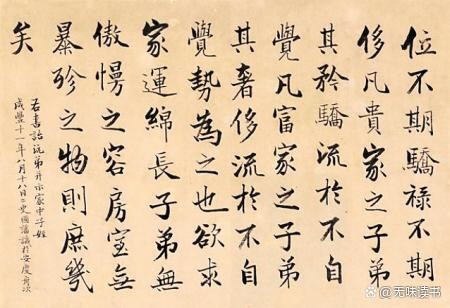 位不期驕祿不期
侈凡貴家之子弟
其矜驕流於不自
覺凡富家之子弟
其奢侈流於不自
覺勢為之也欲求
家運綿長子弟無
傲慢之容房室無
暴殄之物則庶幾
矣
書詒沅弟并示家中子姪
咸豐十一年八月十八日二更國藩識於安慶舟次
@无味读书